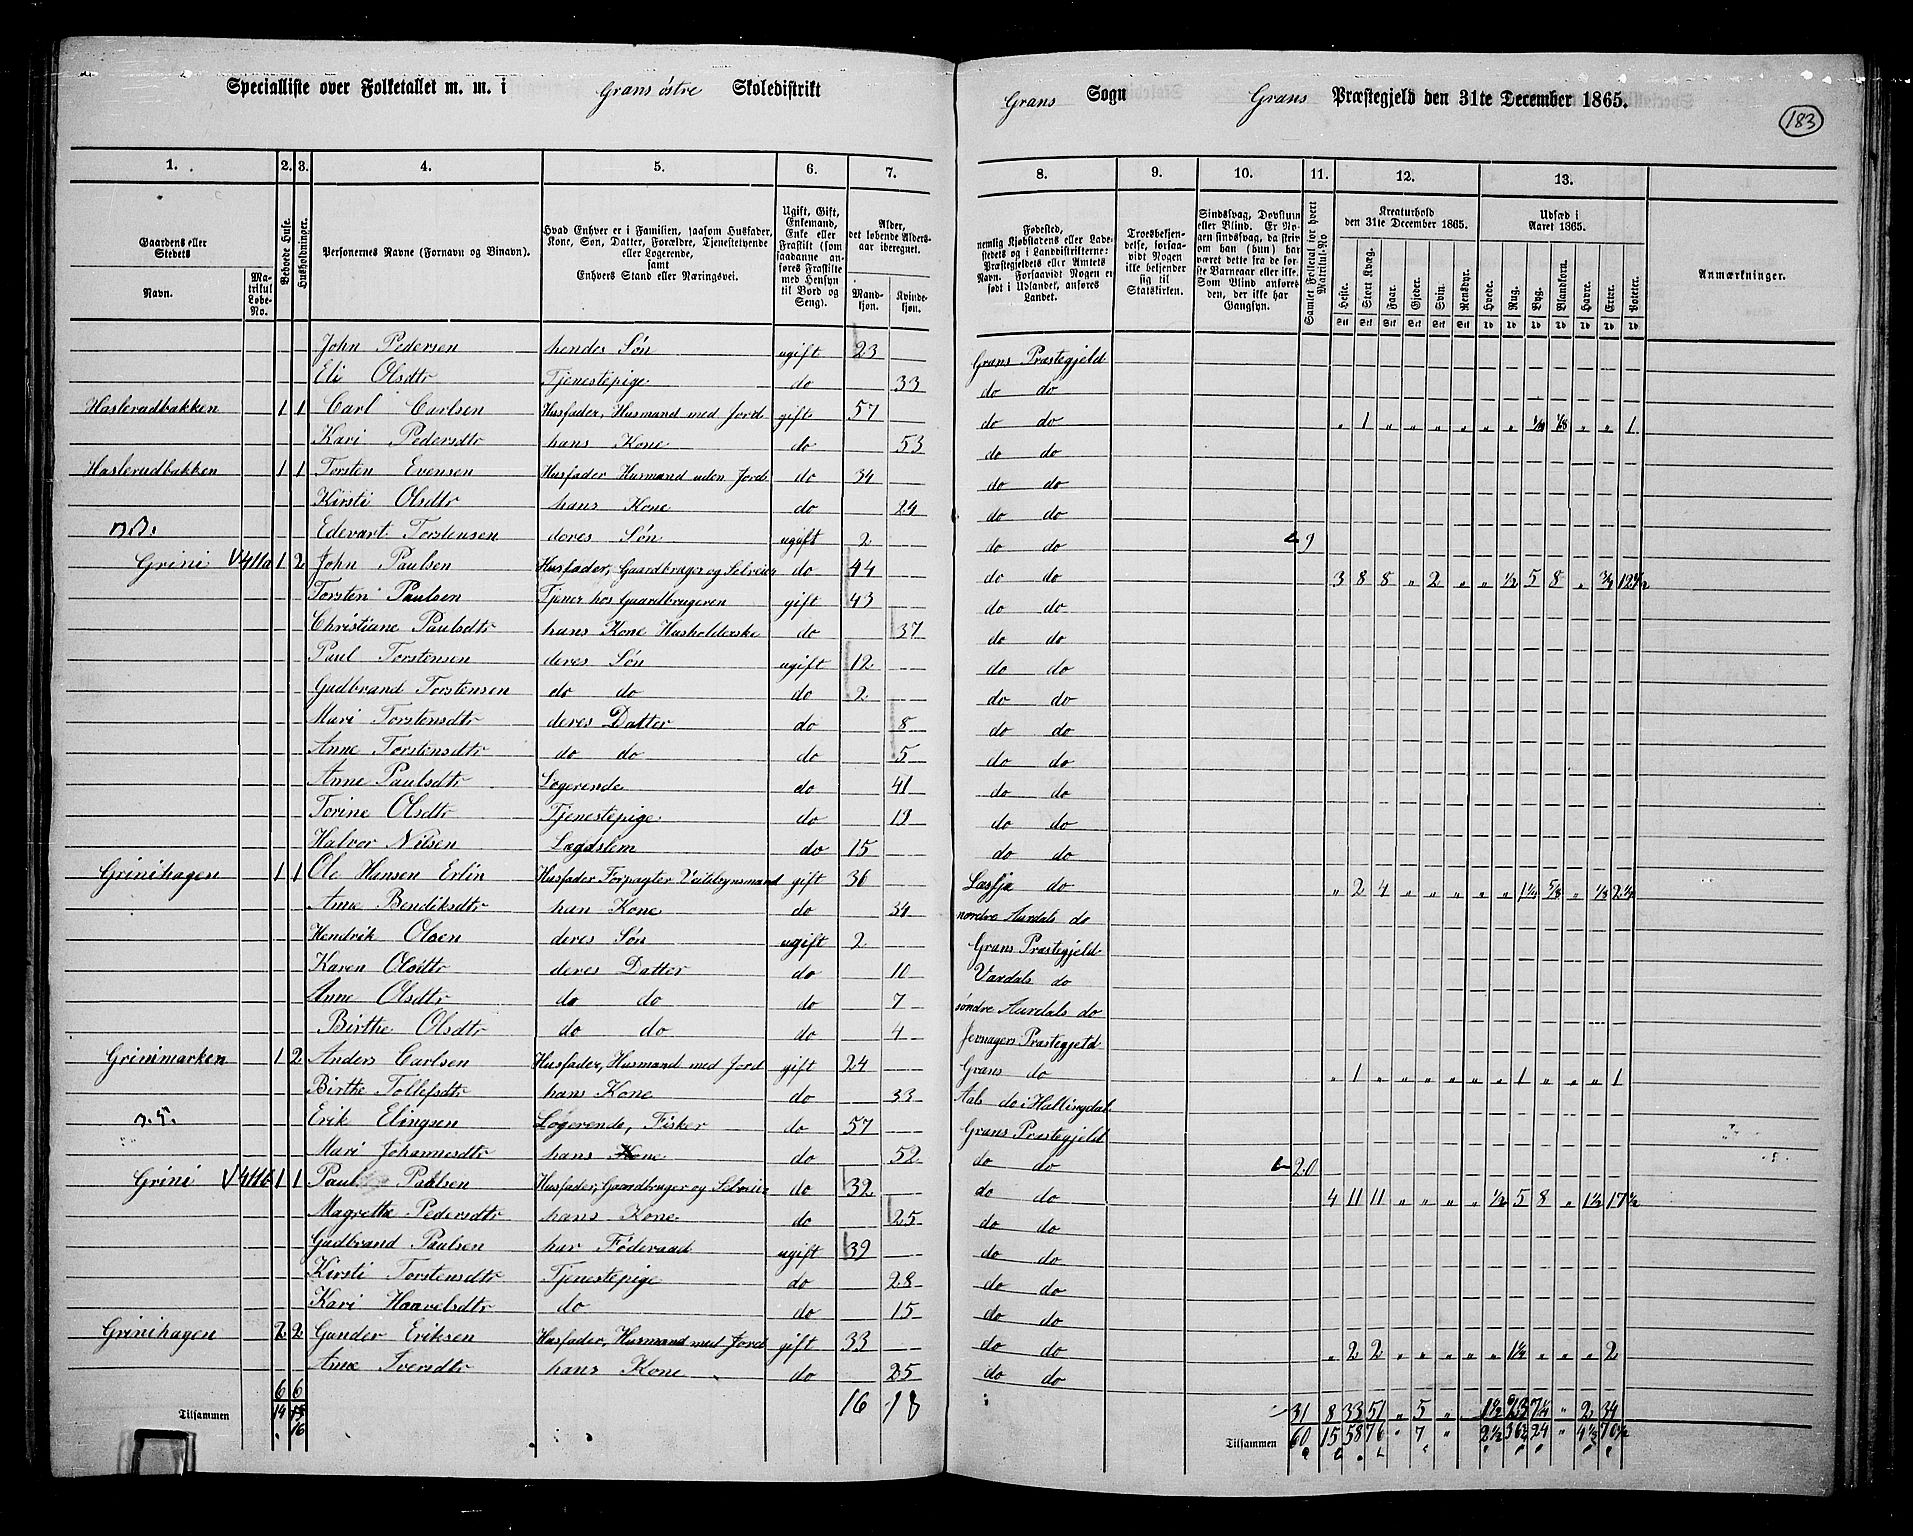 Specialliste over Folketallet m. m. i Grans östre Skoledistrikt Grans Sogn Grans Præstegjeld den 31te December 1865.
183
1. 2. 3. 4. 5. 6. 7. 8. 9. 10. 11. 12. 13.
Gaardens eller Stedets
Navn.
Matrikul Løbe-No.
Beboede Huse.
Husholdninger.
Personernes Navne (Fornavn og Binavn).
Hvad Enhver er i Familien, saasom Husfader, Kone, Søn, Datter, Forældre, Tjenestetyende eller Logerende, samt Enhvers Stand eller Næringsvei.
Ugift, Gift, Enkemand, Enke eller Fraskilt (som saadanne anføres Fraskilte med Hensyn til Bord og Seng).
Alder, det løbende Aldersaar iberegnet.
Mandkjøn. Kvindekjøn.
Fødested, nemlig Kjøbstadens eller Ladestedets og i Landdistrikterne: Præstegjeldets eller Amtets Navn. Forsaavidt Nogen er født i Udlandet, anføres Landet.
Troesbekjendelse, forsaavidt Nogen ikke bekjender sig til Statskirken.
Sindssvag, Døvstum eller Blind. Er Nogen sindssvag, da skriv om han (hun) har været dette fra de første Barneaar eller ikke. Som Blind anføres den, der ikke har Gangsyn.
Samlet Folketal for hvert Matrikul-No
Kreaturhold den 31te December 1865.
Heste. Stort Kvæg. Faar. Gjeder. Svin. Rensdyr.
Udsæd i Aaret 1865.
Hvede. Rug. Byg. Blandkorn. Havre. Erter. Poteter.
Anmærkninger.
John Pedersen hendes Søn ugift 23 Grans Præstegjeld
Eli Olsdtr Tjenestepige do 33 do do
Haslerudbakken 1 1 Carl Carlsen Husfader, Husmand med Jord gift 57 do do " 1 " " " " " " 1/8 " " 1
Kari Pedersdtr hans Kone do 53 do do
Haslerudbakken 1 1 Torsten Evensen Husfader Husmand uden Jord do 34 do do
Kirsti Olsdtr hans Kone do 24 do do
Edevart Torstensen deres Søn ugift 2 do do 9
Grini 411a 1 2 John Paulsen Husfader, Gaardbruger og Selveier do 44 do do 3 8 8 " 2 " " 1/2 5 8 " 3/4 12 1/2
Torsten Paulsen Tjener hos Gaardbrugeren gift 43 do do
Christiane Paulsdtr hans Kone Husholderske do 37 do do
Paul Torstensen deres Søn ugift 12 do do
Gudbrand Torstensen do do do 2 do do
Mari Torstensdtr deres Datter do 8 do do
Anne Torstensdtr do do do 5 do do
Anne Paulsdtr Logerende do 41 do do
Torine Olsdtr Tjenestepige do 19 do do
Halvor Nilsen Lægdslem do 15 do do
Grinihagen 1 1 Ole Hansen Erlin Husfader Forpagter Veitilsynsmand gift 36 Læsja do " 2 4 " " " " " 1 1/4 5/8 " 1/8 2 1/2
Anne Bendiksdtr han Kone do 34 nordre Aurdals do
Hendrik Olsen deres Søn ugift 2 Grans Præstegjeld
Karen Olsdtr deres Datter do 10 Vardals do
Anne Olsdtr do do do 7 søndre Aurdals do
Birthe Olsdtr do do do 4 Jevnagers Præstegjeld
Grinimarken 1 2 Anders Carlsen Husfader, Husmand med Jord gift 24 Grans do " 1 " " " " " " 1 " " " 1
Birthe Tollefsdtr hans Kone do 33 Aals do i Hallingdal
Erik Elingsen Logerende, Fisker do 57 Grans Præstegjeld
Mari Johannesdtr hans Kone do 52 do do 20
Grini 411b 1 1 Paul Paulsen Husfader, Gaardbruger og Selveier do 32 do do 4 11 11 " " " " 1/2 5 8 " 1 1/2 17 1/2
Magrethe Pedersdtr hans Kone do 25 do do
Gudbrand Paulsen har Föderaad ugift 39 do do
Kirsti Torstensdtr Tjenestepige do 28 do do
Kari Haavelsdtr do do 15 do do
Grinihagen 2 2 Gunder Eriksen Husfader, Husmand med Jord gift 33 do do " 2 2 " " " " " 1 1/4 " " " 2
Anne Iversdtr hans Kone do 25 do do
6 6
Tilsammen 14 15 16 18 31 8 33 51 " 5 " 1 1/2 23 7 1/4 " 2 34
16 Tilsammen 60 15 58 76 " 7 " 2 1/2 36 1/2 24 " 4 1/2 70 1/2